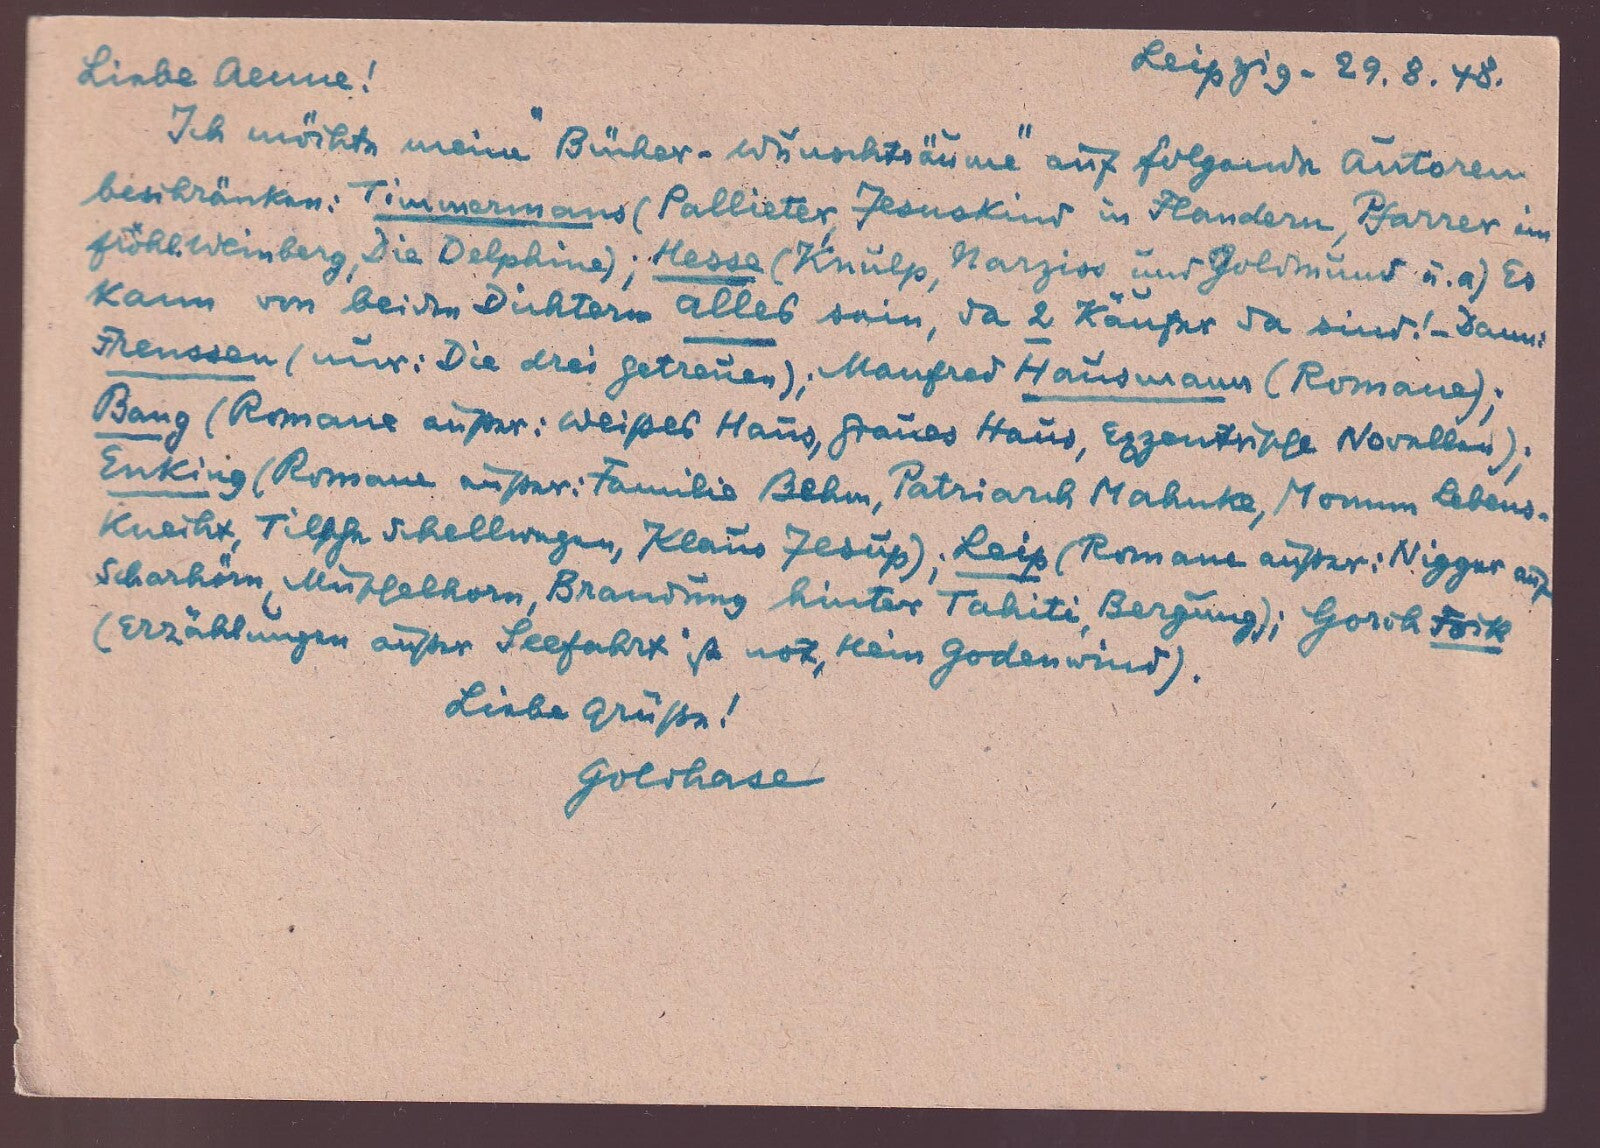 Leipzig - 29. 8. 48.
Liebe Aenne!
Ich möchte meine "Bücher-Wunschträume" auf folgende Autoren
beschränken: Timmermans (Pallieter, Jesuskind in Flandern, Pfarrer im
fröhl. Weinberg, Die Delphine); Hesse (Knulp, Narziss und Goldmund u.a) Es
kann von beiden Dichtern alles sein, da 2 Käufer da sind! - Dann:
Frenssen (nur: Die drei getreuen); Manfred Hausmann (Romane);
Bang (Romane außer: Weißes Haus, graues Haus, Exzentrische Novellen);
Enking (Romane außer: Familie Behm, Patriarch Mahnke, Momm Lebens-
knecht, Tilsche Schellwegen, Klaus Jesup); Leip (Romane außer: Nigger auf
Scharhörn, Muschelhorn, Brandung hinter Tahiti, Bergung); Gorch Fock
(Erzählungen außer Seefahrt ist not, Hein Godenwind).
Liebe Grüße!
Goldhase